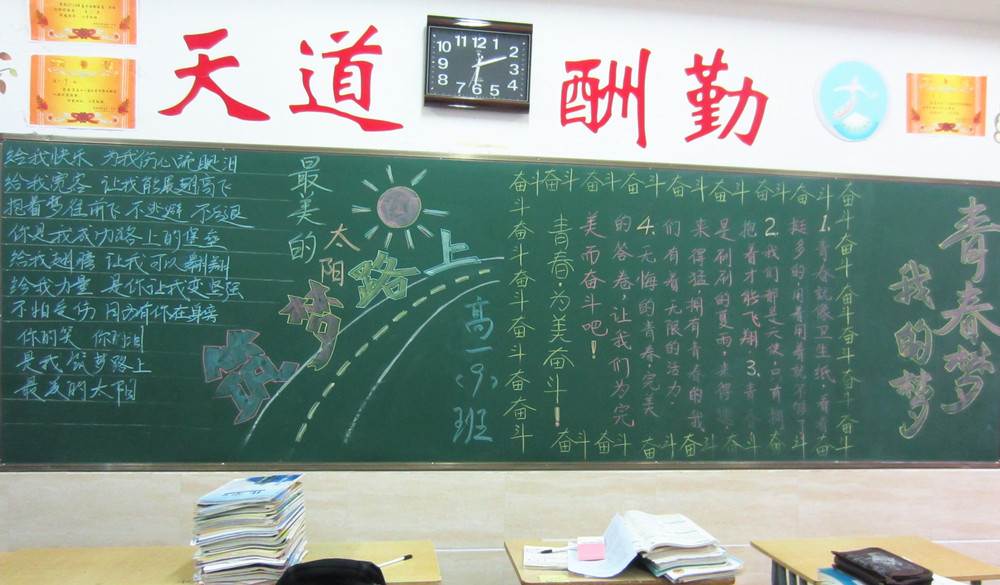 天道酬勤
12
1
2
3
4
5
6
7
8
9
10
11
给我快乐 为我伤心流眼泪
给我宽容 让我能展翅高飞
抱着梦往前飞 不逃避 不后退
你是我成功路上的堡垒
给我翅膀 让我可以翱翔
给我力量 是你让我变坚强
不怕受伤 因为有你在身旁
你的笑 你的泪
是我筑梦路上
最美的太阳
最美的
太阳
筑梦路上
高一(9)班
奋斗奋斗 奋斗 奋斗 奋斗 奋斗 奋斗 奋斗
奋斗奋斗奋斗奋斗奋斗奋斗
奋斗奋斗奋斗奋斗奋斗奋斗
奋斗奋斗 奋斗奋斗奋斗奋斗
1.青春就像卫生纸,看着
挺多的,用着用着就不够了
2.我们都是天使,只有拥
抱着才能飞翔 3.青春
是
的夏雨,来得
来得猛,拥有青春的我
们有着无限的活力,
4.无悔的青春,完美
的答卷,让我们为完
美而奋斗吧!
青春,为美奋斗!
青春梦
我的梦